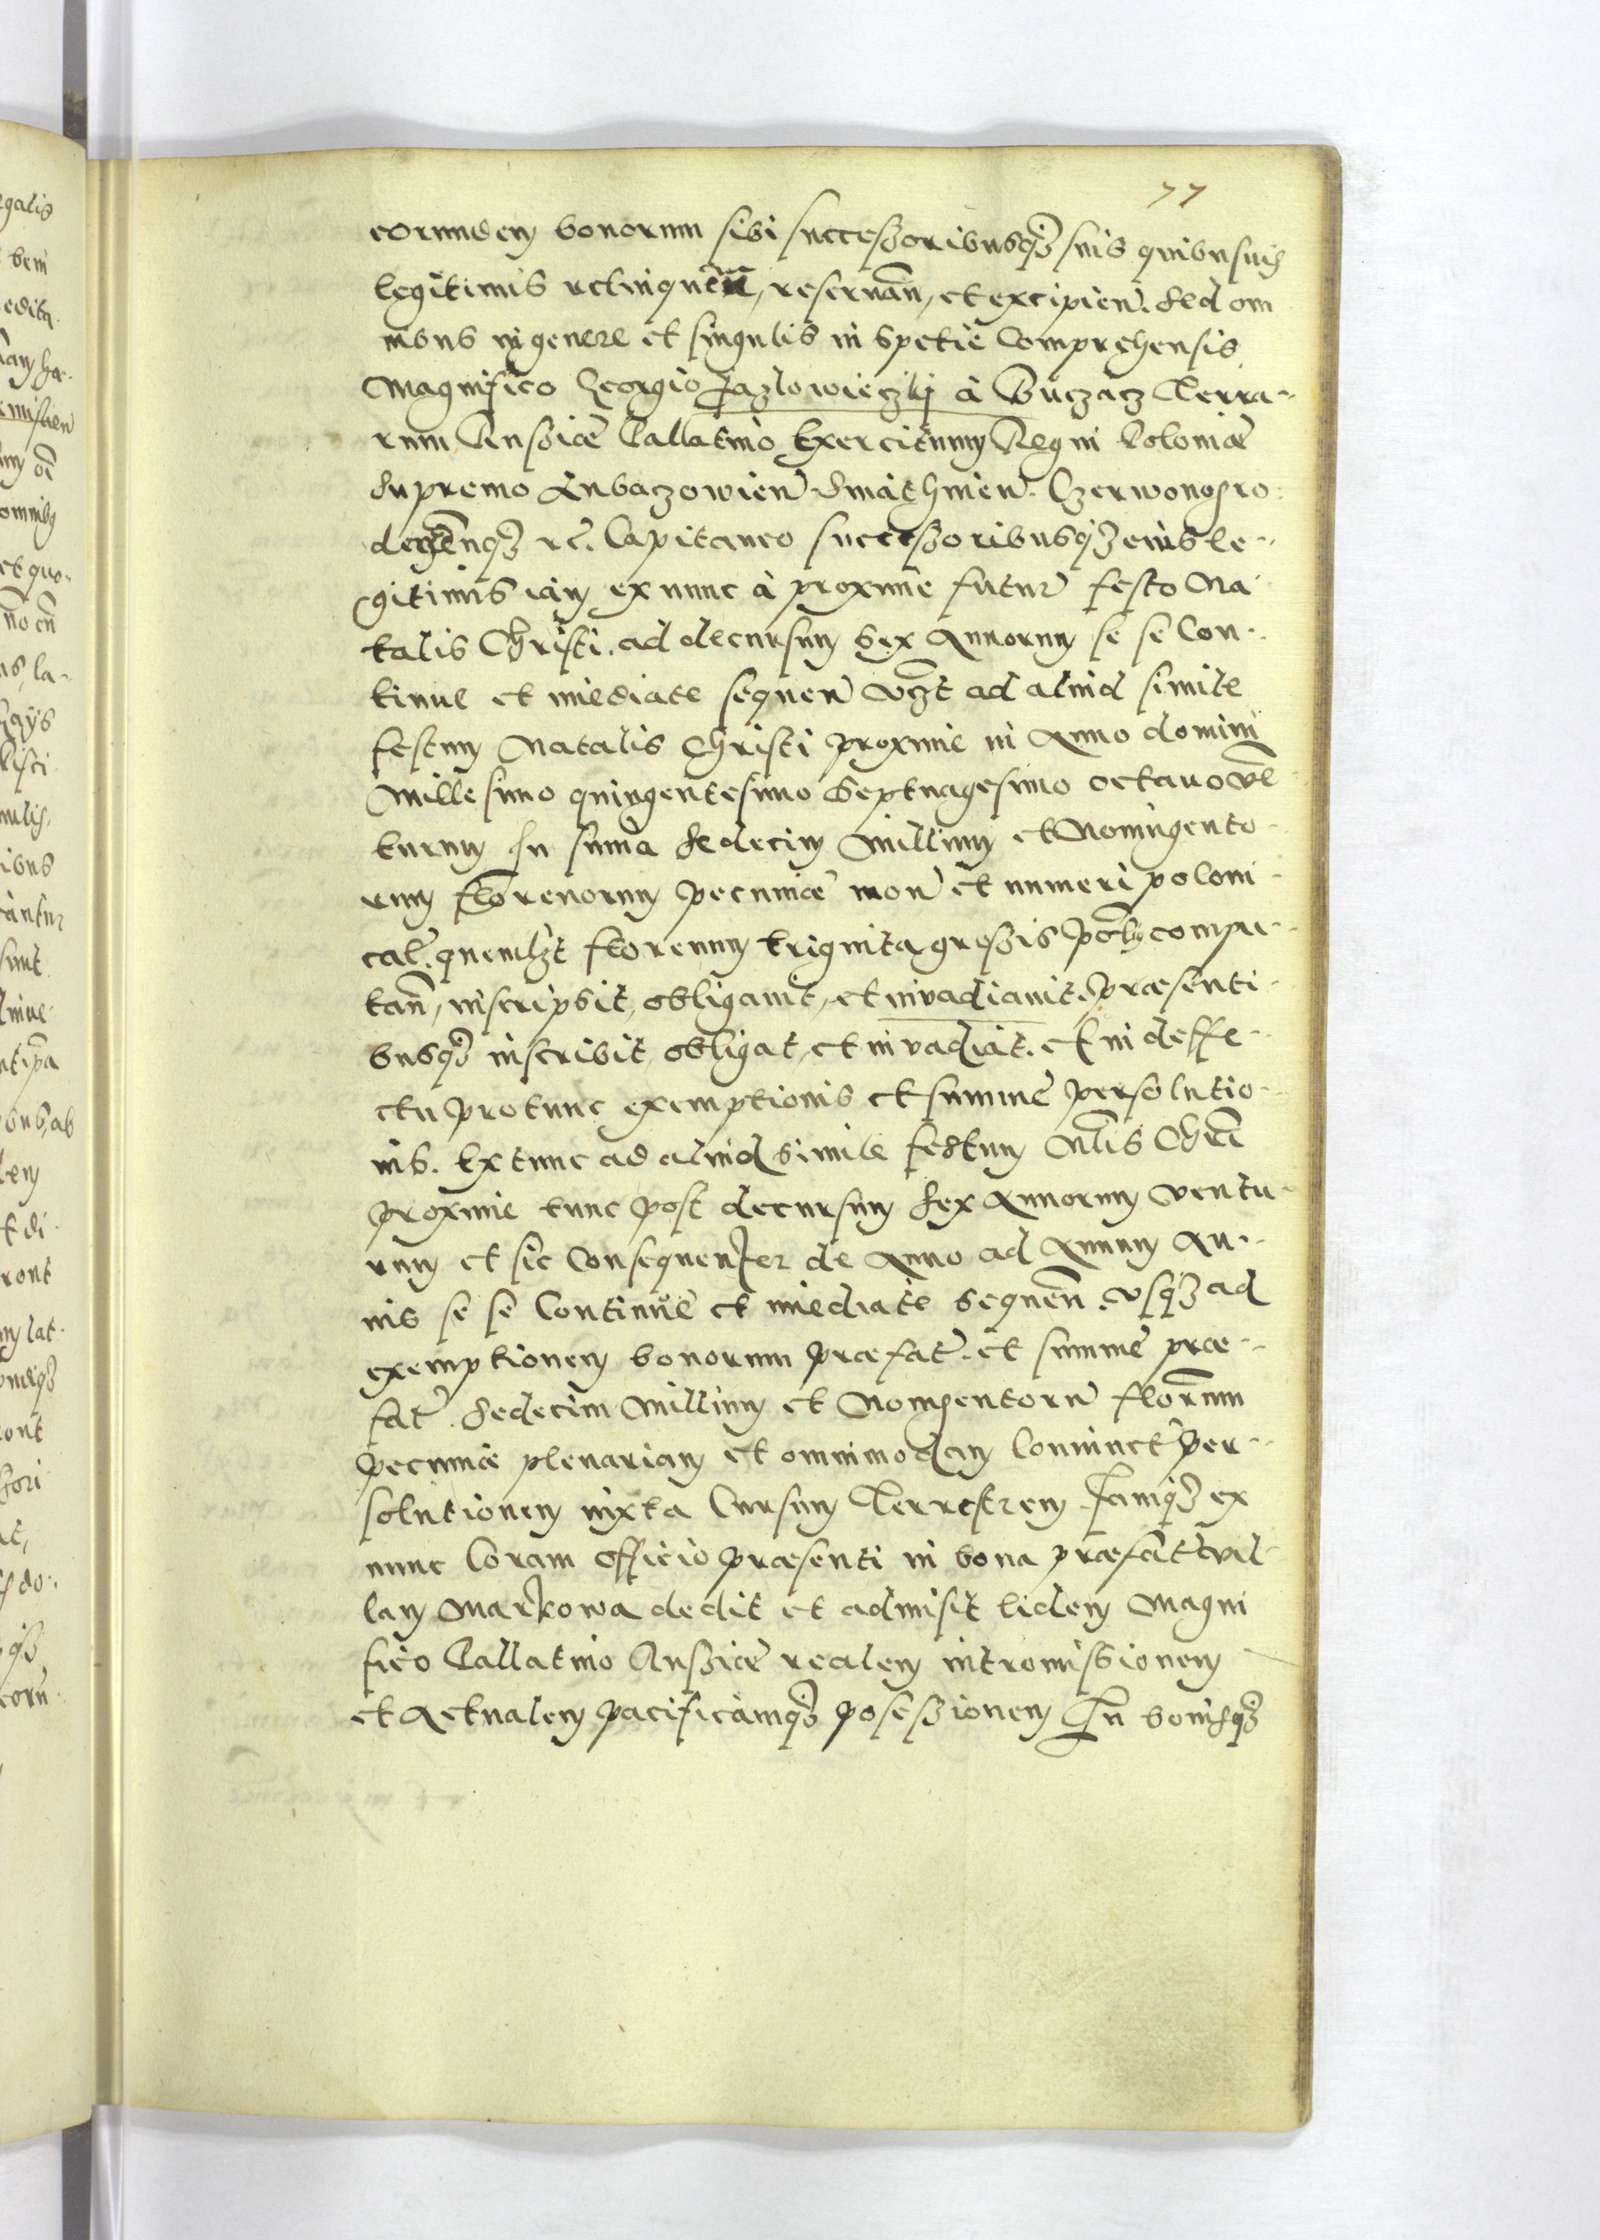 77
eorundem bonorum sibi successoribusq3 suis quibusuis
legitimis relinquen, reseruan, et excipien. Sed om
nibus in genere et singulis in spetie Comprehensis
Magnifico Georgio Jazlowieczkij à Buczacz Terra-
rum Russiæ Pallatino Exercituum Regni Poloniæ
Supremo Lubaczowien Sniathinen. Czerwonogro
denq3 etc. Capitaneo successoribusq3 eius le-
gitimis iam ex nunc à proxime futur festo Na
talis Christi. ad decursum Sex Annorum se se Con-
tinue et imediate sequen vzt ad aliud simile
festum Natalis Christi proxime in Anno domini
Millesimo quingentesimo Septuagesimo octauo ven
turum In suma Sedecim Millium et Nomingento-
rum florenorum pecuniæ mon et numeri poloni-
cal. quemlzt florenum triginta grossis pol compu-
tan, inscripsit, obligauit, et inuadiauit. Præsenti-
busq3 inscribit obligat, et inuadiat. Et in deffe-
ctu protunc exemptionis et summæ persolutio-
nis. Extunc ad aliud simile festum Nlis Chri
proxime tunc post decursum sex Annorum ventu-
rum et sic Consequenter de Anno ad Annum An-
nis se se Continue et imediate sequen. vsq3 ad
exemptionem bonorum præfat. et summæ præ-
fat. Sedecim Millium et Nomgentoru florenum
pecuniæ plenariam et omnimodam Conuinct per-
solutionem iuxta Cursum Terrestrem. Jamq3 ex
nunc Coram officio præsenti in bona præfat vil-
lam Markowa dedit et admisit eidem Magni
fico Pallatino Russiæ realem intromissionem
et Actualem pacificamq3 posessionem In bonisq3